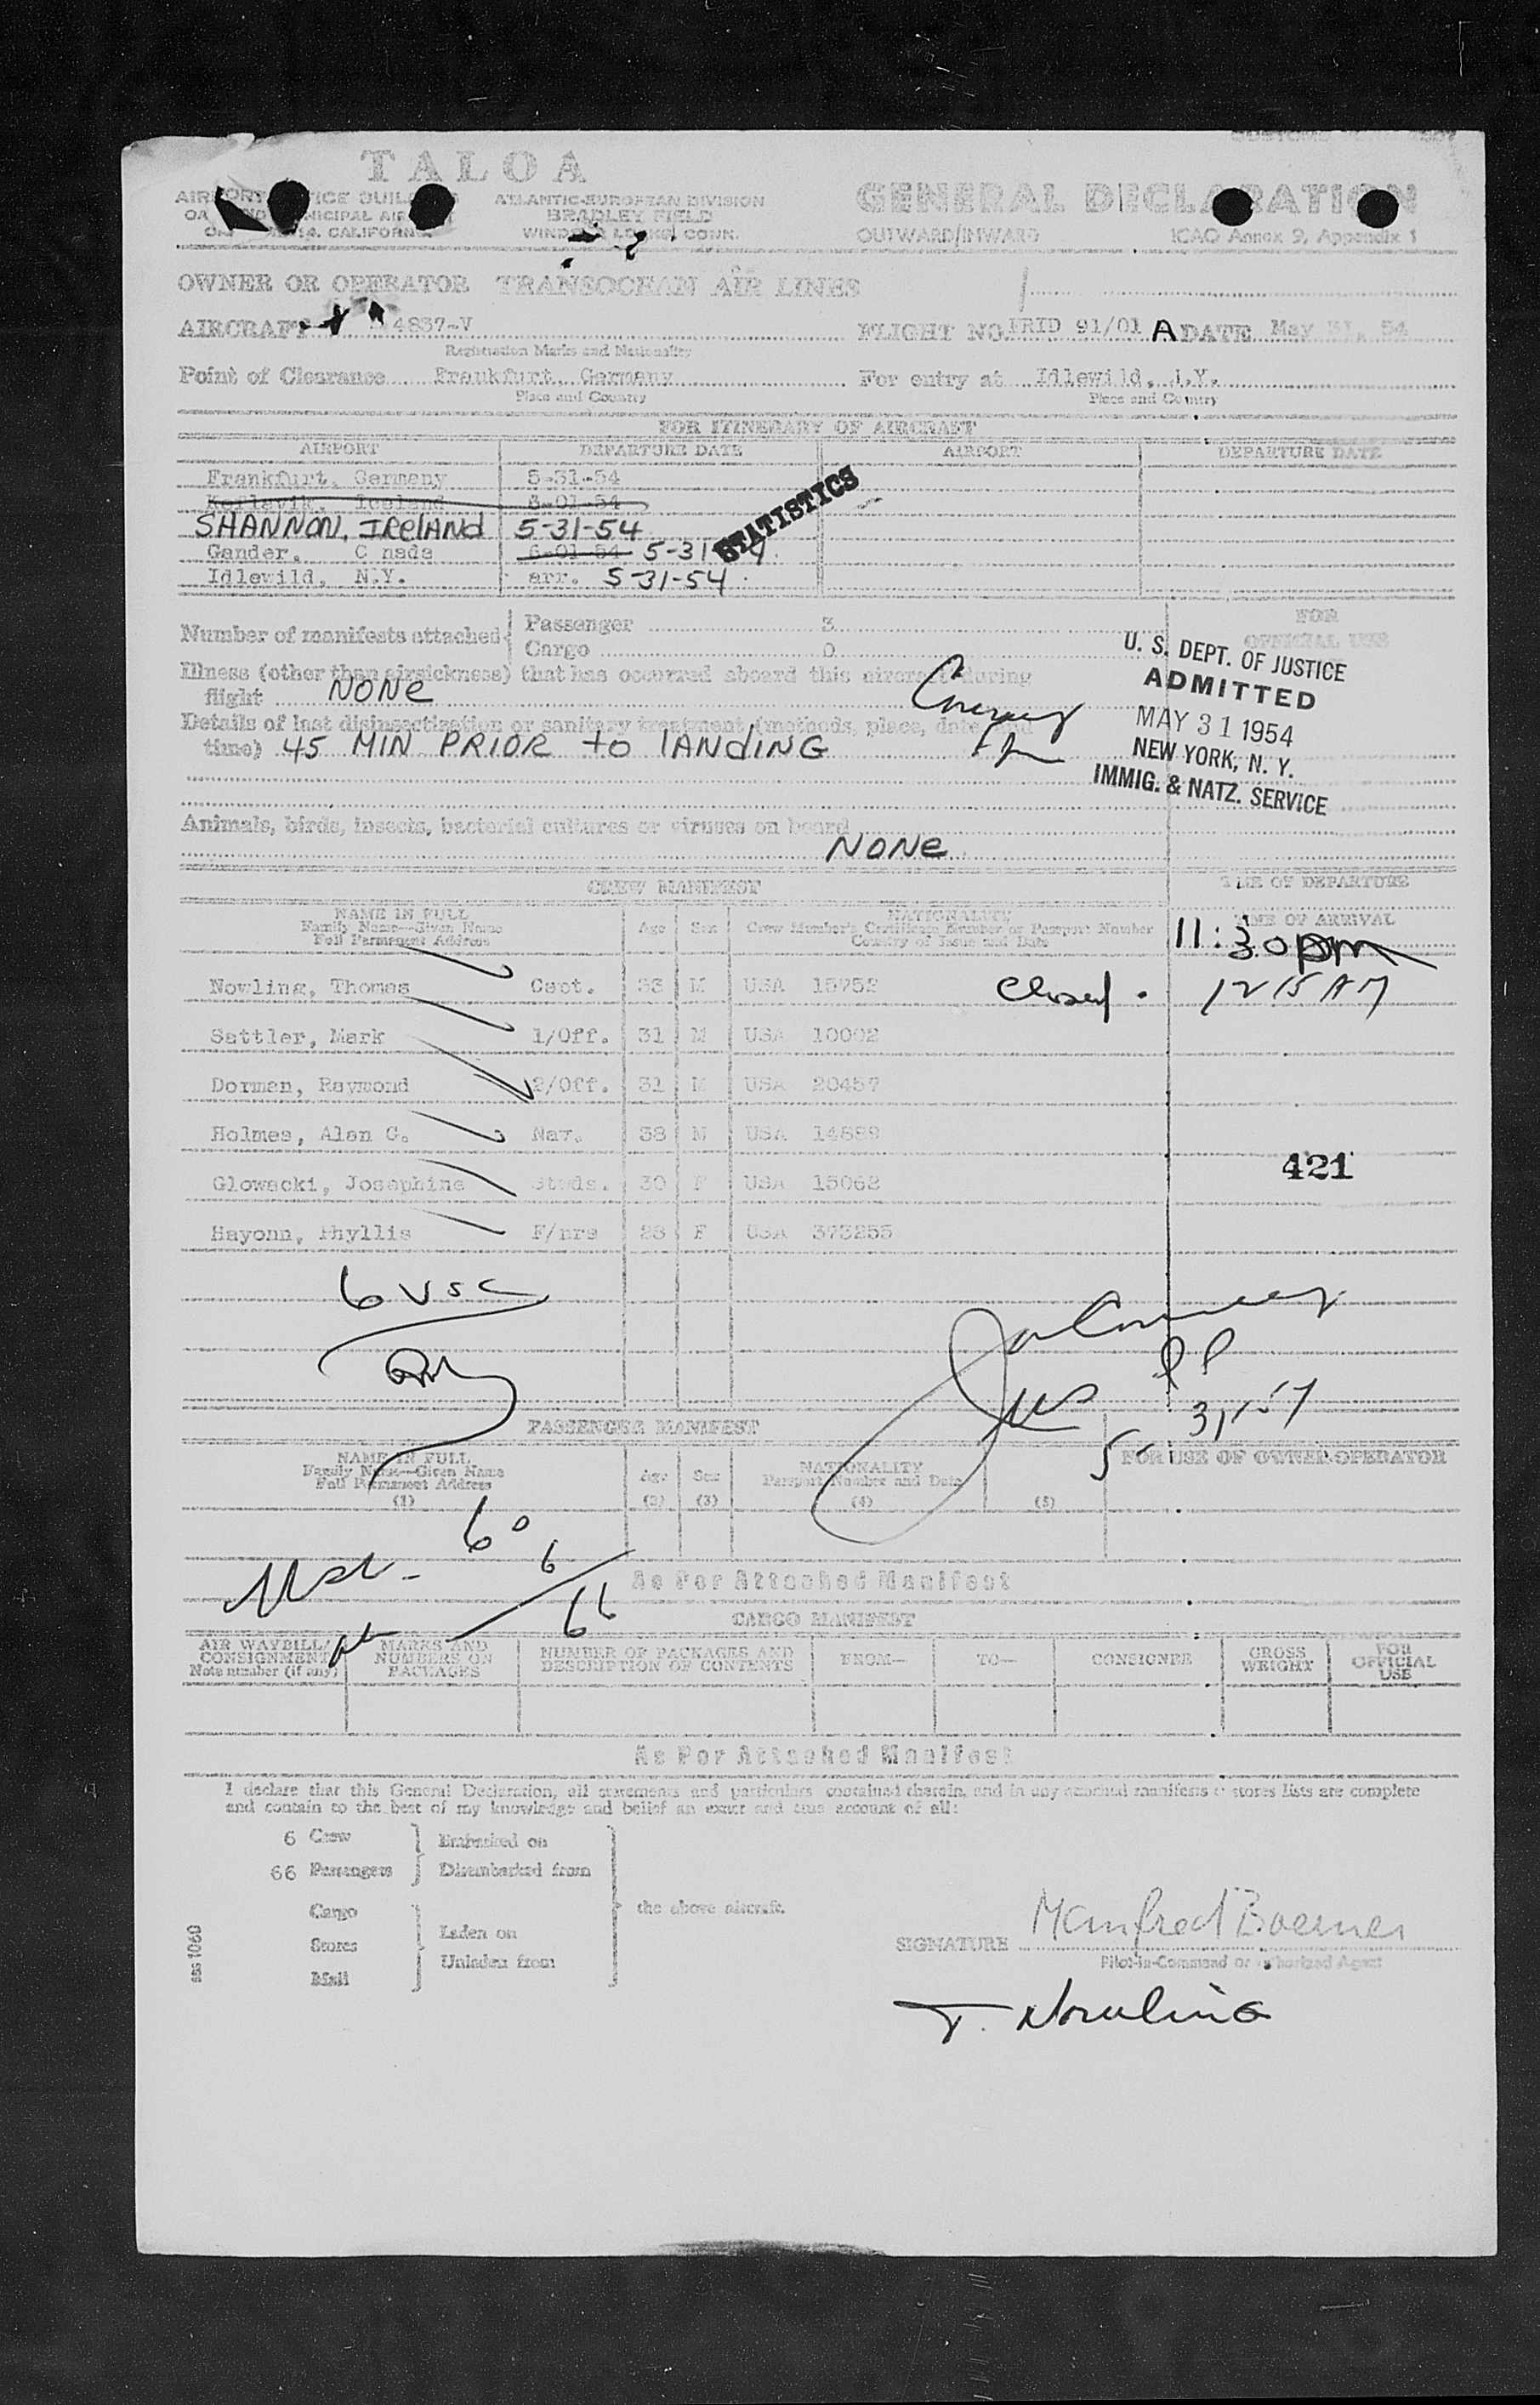 TALOA
GENERAL DECLARATION
ATLANTIC-EUROPEAN DIVISION
BRADLEY FIELD
OUTWARD/INWARD
ICAO Annex 9, Appendix 1
OWNER OR OPERATOR TRANSOCEAN AIR LINES
AIRCRAFT 4837-V FLIGHT NO. FRID 91/01 A DATE May 31, 54
Registration Marks and Nationality
Point of Clearance Frankfurt, Germany For entry at Idlewild, N.Y.
Place and Country Place and Country
FOR ITINERARY OF AIRCRAFT
AIRPORT DEPARTURE DATE AIRPORT DEPARTURE DATE
Frankfurt, Germany 5-31-54
Keflavik, Iceland 6-01-54
SHANNON, IRELAND 5-31-54
STATISTICS
Gander, C nada 6-01-54 5-31-54
Idlewild, N.Y. arr. 5-31-54
Number of manifests attached Passenger 3
Cargo 0
FOR
OFFICIAL USE
Illness (other than airsickness) that has occurred aboard this aircraft during
flight NONE
Details of last disinsectization or sanitary treatment (methods, place, date and
time) 45 MIN PRIOR to LANDING
U. S. DEPT. OF JUSTICE
ADMITTED
MAY 31 1954
NEW YORK, N. Y.
IMMIG. & NATZ. SERVICE
Animals, birds, insects, bacterial cultures or viruses on board
NONE
CREW MANIFEST
TIME OF DEPARTURE
NAME IN FULL
Family Name—Given Name
Full Permanent Address
Age Sex
NATIONALITY
Crew Member's Certificate Number or Passport Number
Country of Issue and Date
TIME OF ARRIVAL
11:30pm
Nowling, Thomas Capt. M USA 15752
Closed. 1215 AM
Sattler, Mark 1/Off. 31 M USA 10002
Dorman, Raymond 2/Off. 31 M USA 20457
Holmes, Alan G. Nav. 38 M USA 14889
421
Glowacki, Josephine Stwds. 30 F USA 15062
Hayonn, Phyllis F/nrs 28 F USA 373255
6 USC
PASSENGER MANIFEST
5-31-54
NAME IN FULL
Family Name—Given Name
Full Permanent Address
(1)
Age
(2)
Sex
(3)
NATIONALITY
Passport Number and Date
(4)
(5)
FOR USE OF OWNER-OPERATOR
60
6
66
As Per Attached Manifest
CARGO MANIFEST
AIR WAYBILL/
CONSIGNMENT
Note number (if any)
MARKS AND
NUMBERS ON
PACKAGES
NUMBER OF PACKAGES AND
DESCRIPTION OF CONTENTS
FROM—
TO—
CONSIGNEE
GROSS
WEIGHT
FOR
OFFICIAL
USE
As Per Attached Manifest
I declare that this General Declaration, all statements and particulars contained therein, and in any attached manifests or stores lists are complete
and contain to the best of my knowledge and belief an exact and true account of all:
6 Crew Embarked on
66 Passengers Disembarked from
Cargo
the above aircraft.
Stores Laden on
Mail Unladen from
SIGNATURE Manfred Boerner
Pilot-in-Command or Authorized Agent
T. Nowling